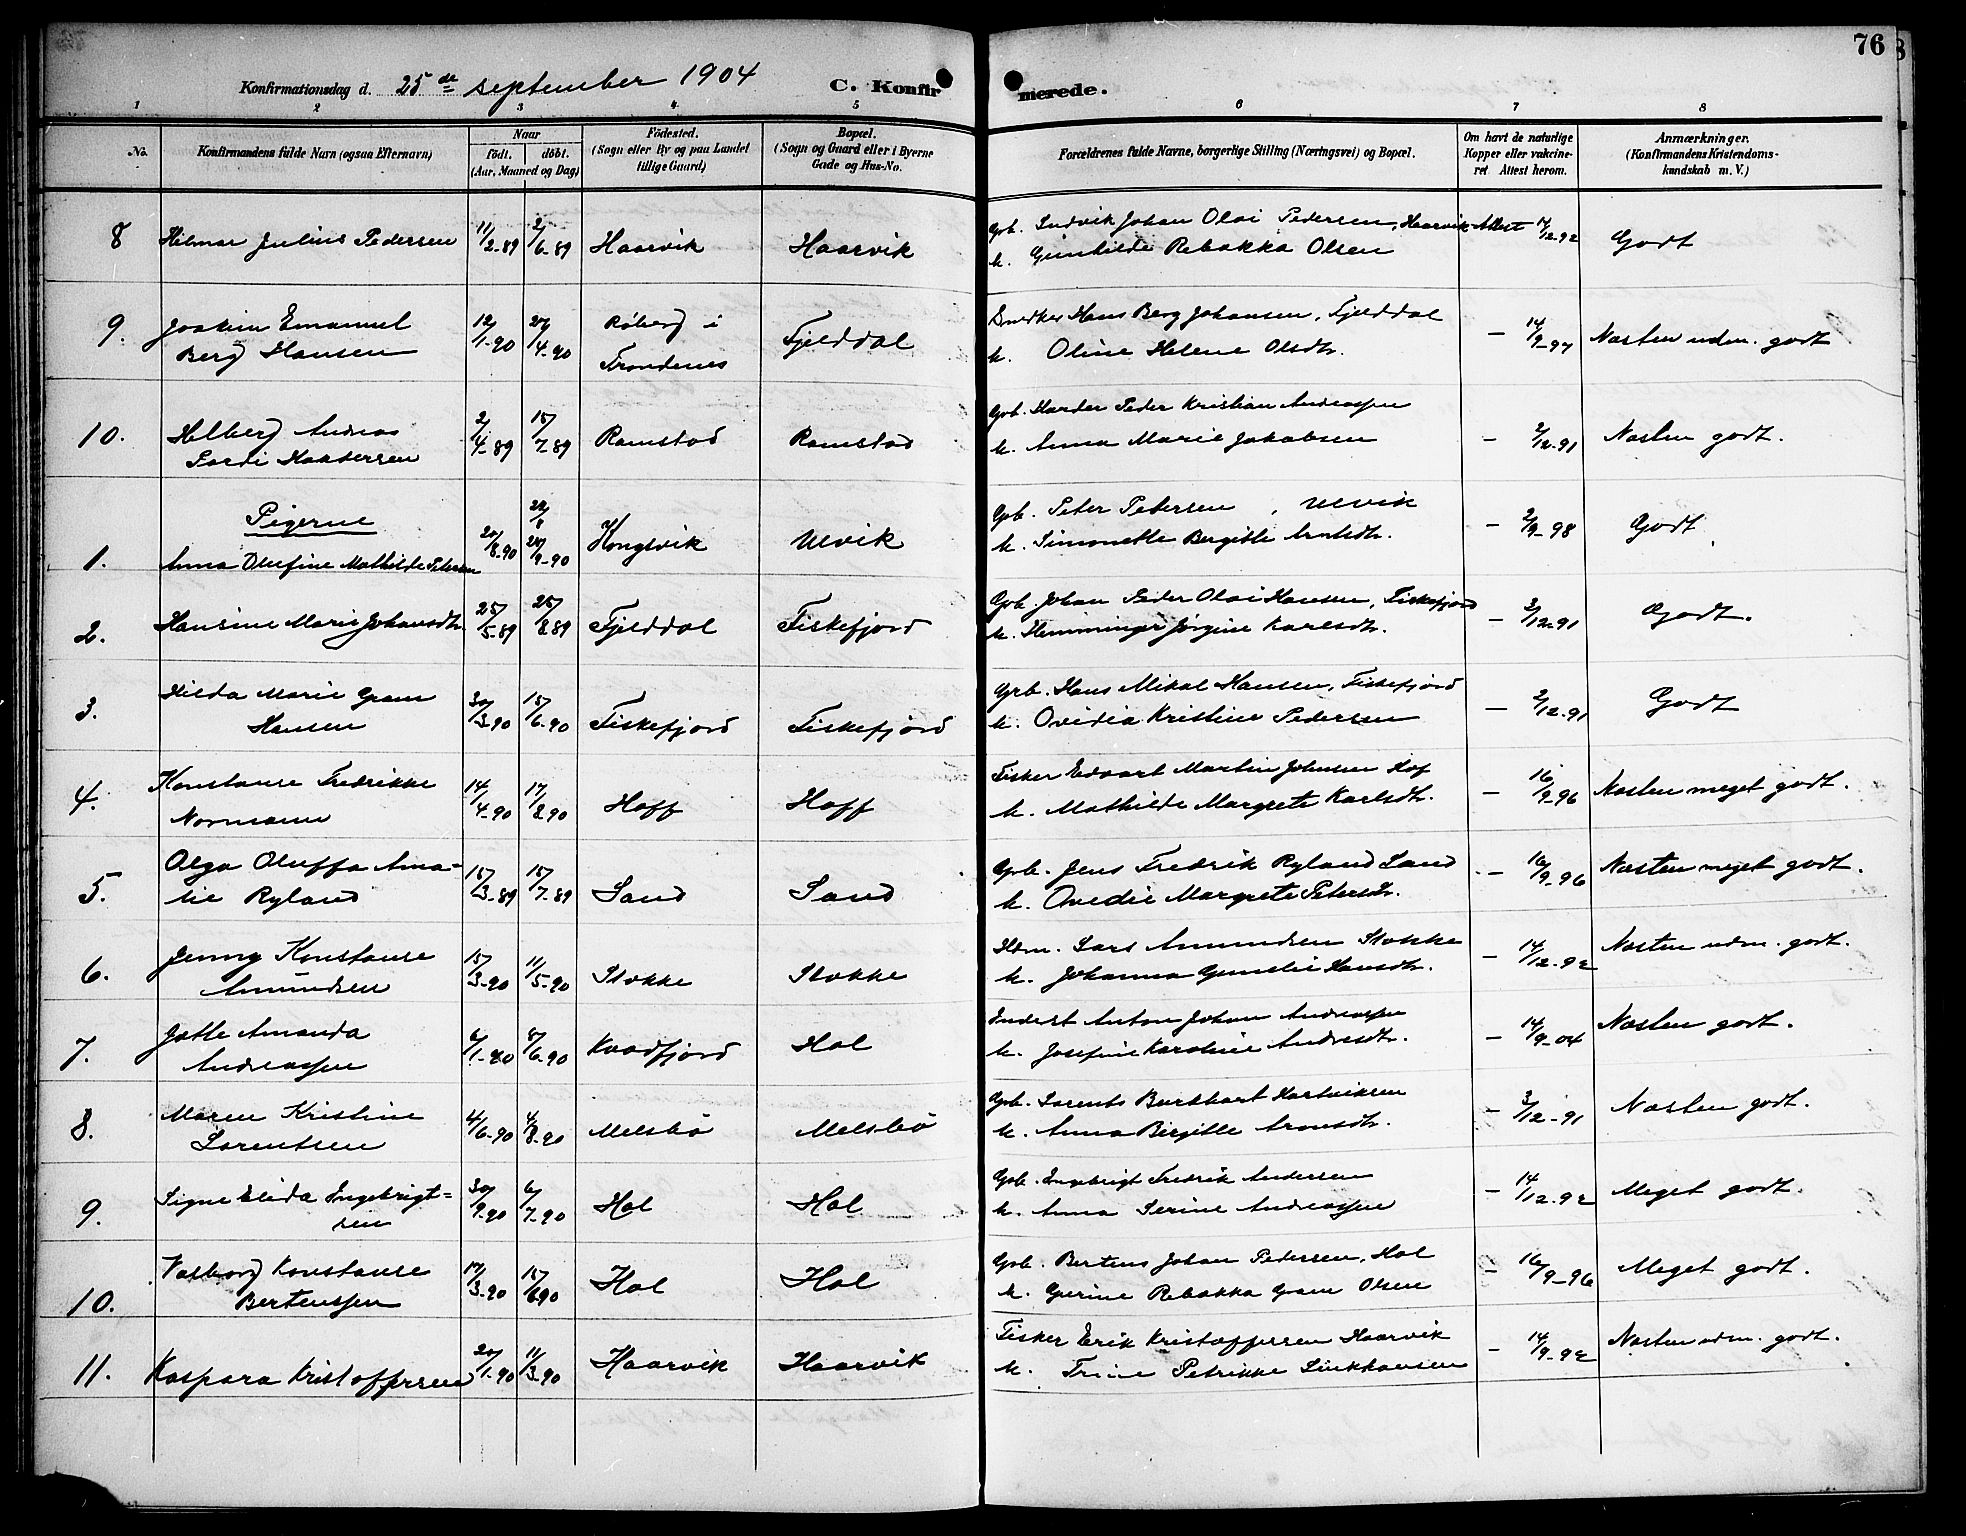 76
Konfirmationsdag d. 25de september 1904 C. Konfirmerede.
1 2 3 4 5 6 7 8
No. Konfirmandens fulde Navn (ogsaa Efternavn) Naar födt. döbt. (Aar, Maaned og Dag) Födested. (Sogn eller By og paa Landet tillige Gaard) Bopæl. (Sogn og Gaard eller i Byerne Gade og Hus-No. Forældrenes fulde Navne, borgerlige Stilling (Næringsvei) og Bopæl. Om havt de naturlige Kopper eller vakcineret Attest herom. Anmærkninger. (Konfirmandens Kristendomskundskab m. V.)
8 Hilmar Julius Pedersen 11/2-89 2/6-89 Haarvik Haarvik Gbr. Ludvik Johan Olai Pedersen, Haarvik Attest 14/12-92 Godt
h. Gunhilde Rebakka Olsen
9. Joakim Emanuel 12/1-90 27/4-90 Røberg i Fjelddal Snedker Hans Berg Johansen, Fjelddal – 14/9-97 Næsten udm. godt
Berg Hansen Trondenes h. Oline Helene Olsdtr.
10. Helberg Andreas 2/4-89 15/7-89 Ramstad Ramstad Gbr. Peder Kristian Andreassen – 2/12-91 Næsten godt.
Pedersen h. Anna Marie Jakobsen
Pigerne
1. Anna Olufine Mathilde Petersen 20/8-90 24/9-90 Kongsvik Ulvik Gbr. Peter Petersen, Ulvik – 2/9-98 Godt
h. Simonette Bergitte
2. Hansine Marie Johansdtr. 25/5-89 25/8-89 Fjelddal Fiskefjord Gbr. Johan Peder Olai Hansen, Fiskefjord – 2/12-91 Godt.
h. Jørgine Karlsdtr.
3. Hilda Marie Gram 30/3-90 15/6-90 Fiskefjord Fiskefjord Gbr. Hans Mikal Hansen, Fiskefjord – 2/12-91 Godt
Hansen h. Ovidia Kristine Pedersen
4. Konstanse Fredrikke 14/4-90 17/8-90 Hoff Hoff Fisker Edvart Martin Johnsen Hof – 16/9-96 Næsten meget godt.
Normann h. Mathilde Margrete Karlsdtr.
5. Olga Oluffa Ama= 15/3-89 15/7-89 Sand Sand Gbr. Jens Fredrik Ryland Sand – 16/9-96 Næsten meget godt.
lie Ryland h. Ovedie Margrete Petersdtr.
6. Jenny Konstanse 15/3-90 11/5-90 Stokke Stokke Hsm. Lars Amundsen Stokke – 14/12-92 Næsten udm. godt.
Amundsen h. Johanna Gunelie Hansdtr.
7. Jette Amanda 6/1-90 8/6-90 Kvædfjord Hol Inderst Anton Johan Andreassen – 14/9-04 Næsten godt.
Andreassen h. Josefine Karoline Andresdtr.
8. Maren Kristine 4/6-90 4/8-90 Melsbö Melsbö Gbr. Lorents Burkhart Hartviksen – 3/12-91 Næsten godt.
Lorentsen h. Anna Birgitte Aronsdtr.
9. Signe Elida Ingebrigt= 30/9-90 6/7-90 Hol Hol Gbr. Ingebrigt Fredrik Andersen – 14/12-92 Meget godt.
sen h. Anna Serine Andreassen
10. Valborg Konstanse 17/3-90 15/6-90 Hol Hol Gbr. Bertens Johan Pedersen, Hol – 16/9-96 Meget godt.
Bertenssen h. Gjerine Rebakka Gram Olsen
11. Kaspara Kristoffersen 20/1-90 11/3-90 Haarvik Haarvik Fisker Erik Kristoffersen Haarvik – 14/9-92 Næsten udm. godt.
h. Trine Petrikke Linkhausen